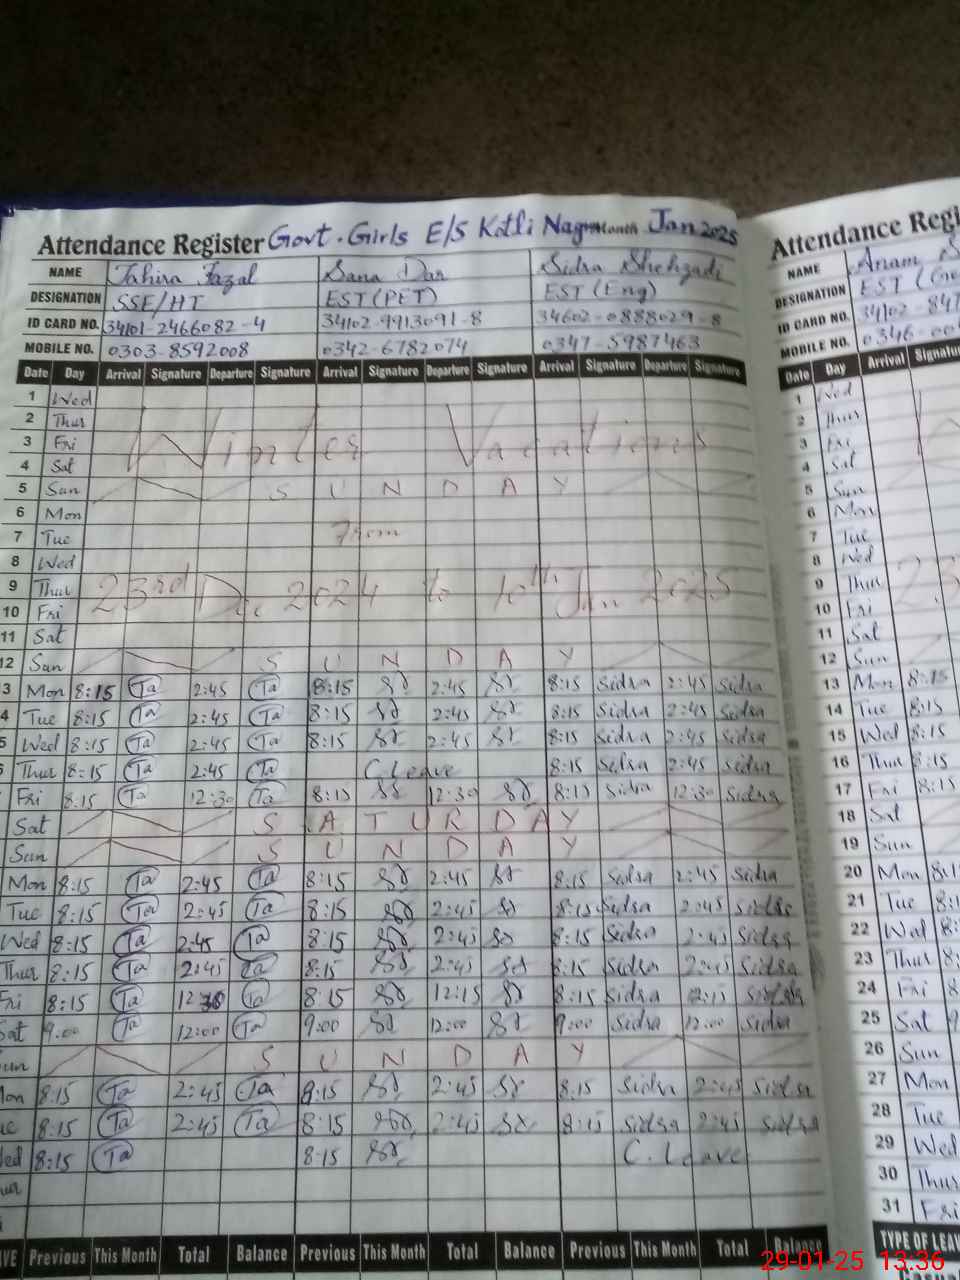 Attendance Register Govt. Girls E/S Kotli Nagra Month Jan 2025
NAME Tahira Fazal Sana Dar Sidra Shehzadi
DESIGNATION SSE/HT EST (PET) EST (Eng)
ID CARD NO. 34101-2466082-4 34102-9913091-8 34602-0888029-8
MOBILE NO. 0303-8592008 0342-6782074 0347-5987463
Date Day Arrival Signature Departure Signature Arrival Signature Departure Signature Arrival Signature Departure Signature
1 Wed
2 Thur
3 Fri Winter Vacations
4 Sat
5 Sun S U N D A Y
6 Mon
7 Tue From
8 Wed
9 Thur 23rd Dec 2024 to 10th Jan 2025
10 Fri
11 Sat
12 Sun S U N D A Y
3 Mon 8:15 Ta 2:45 Ta 8:15 2:45 8:15 Sidra 2:45 Sidra
4 Tue 8:15 Ta 2:45 Ta 8:15 2:45 8:15 Sidra 2:45 Sidra
5 Wed 8:15 Ta 2:45 Ta 8:15 2:45 8:15 Sidra 2:45 Sidra
Thur 8:15 Ta 2:45 Ta C.Leave 8:15 Sidra 2:45 Sidra
Fri 8:15 Ta 12:30 Ta 8:15 12:30 8:15 Sidra 12:30 Sidra
Sat S A T U R D A Y
Sun S U N D A Y
Mon 8:15 Ta 2:45 Ta 8:15 2:45 8:15 Sidra 2:45 Sidra
Tue 8:15 Ta 2:45 Ta 8:15 2:45 8:15 Sidra 2:45 Sidra
Wed 8:15 Ta 2:45 Ta 8:15 2:45 8:15 Sidra 2:45 Sidra
Thur 8:15 Ta 2:45 Ta 8:15 2:45 8:15 Sidra 2:45 Sidra
Fri 8:15 Ta 12 Ta 8:15 12:15 8:15 Sidra 12:15 Sidra
Sat 9:00 Ta 12:00 Ta 9:00 12:00 9:00 Sidra 12:00 Sidra
un S U N D A Y
on 8:15 Ta 2:45 Ta 8:15 2:45 8:15 Sidra 2:45 Sidra
8:15 Ta 2:45 Ta 8:15 2:45 8:15 Sidra 2:45 Sidra
ed 8:15 Ta 8:15 C.Leave
ur
VE Previous This Month Total Balance Previous This Month Total Balance Previous This Month Total Balance
Attendance Regi
NAME Anam S
DESIGNATION EST (
ID CARD NO. 34102-847
MOBILE NO. 0346-00
Date Day Arrival Signatu
1 Wed
2 Thur
3 Fri
4 Sat
5 Sun
6 Mon
7 Tue
8 Wed
9 Thur 23
10 Fri
11 Sat
12 Sun
13 Mon 8:15
14 Tue 8:15
15 Wed 8:15
16 Thur 8:15
17 Fri 8:15
18 Sat
19 Sun
20 Mon 8:1
21 Tue 8:1
22 Wed 8:
23 Thur 8:
24 Fri 8
25 Sat 9
26 Sun
27 Mon
28 Tue
29 Wed
30 Thur
31 Fri
TYPE OF LEAV
Casual
29-01-25 13:36